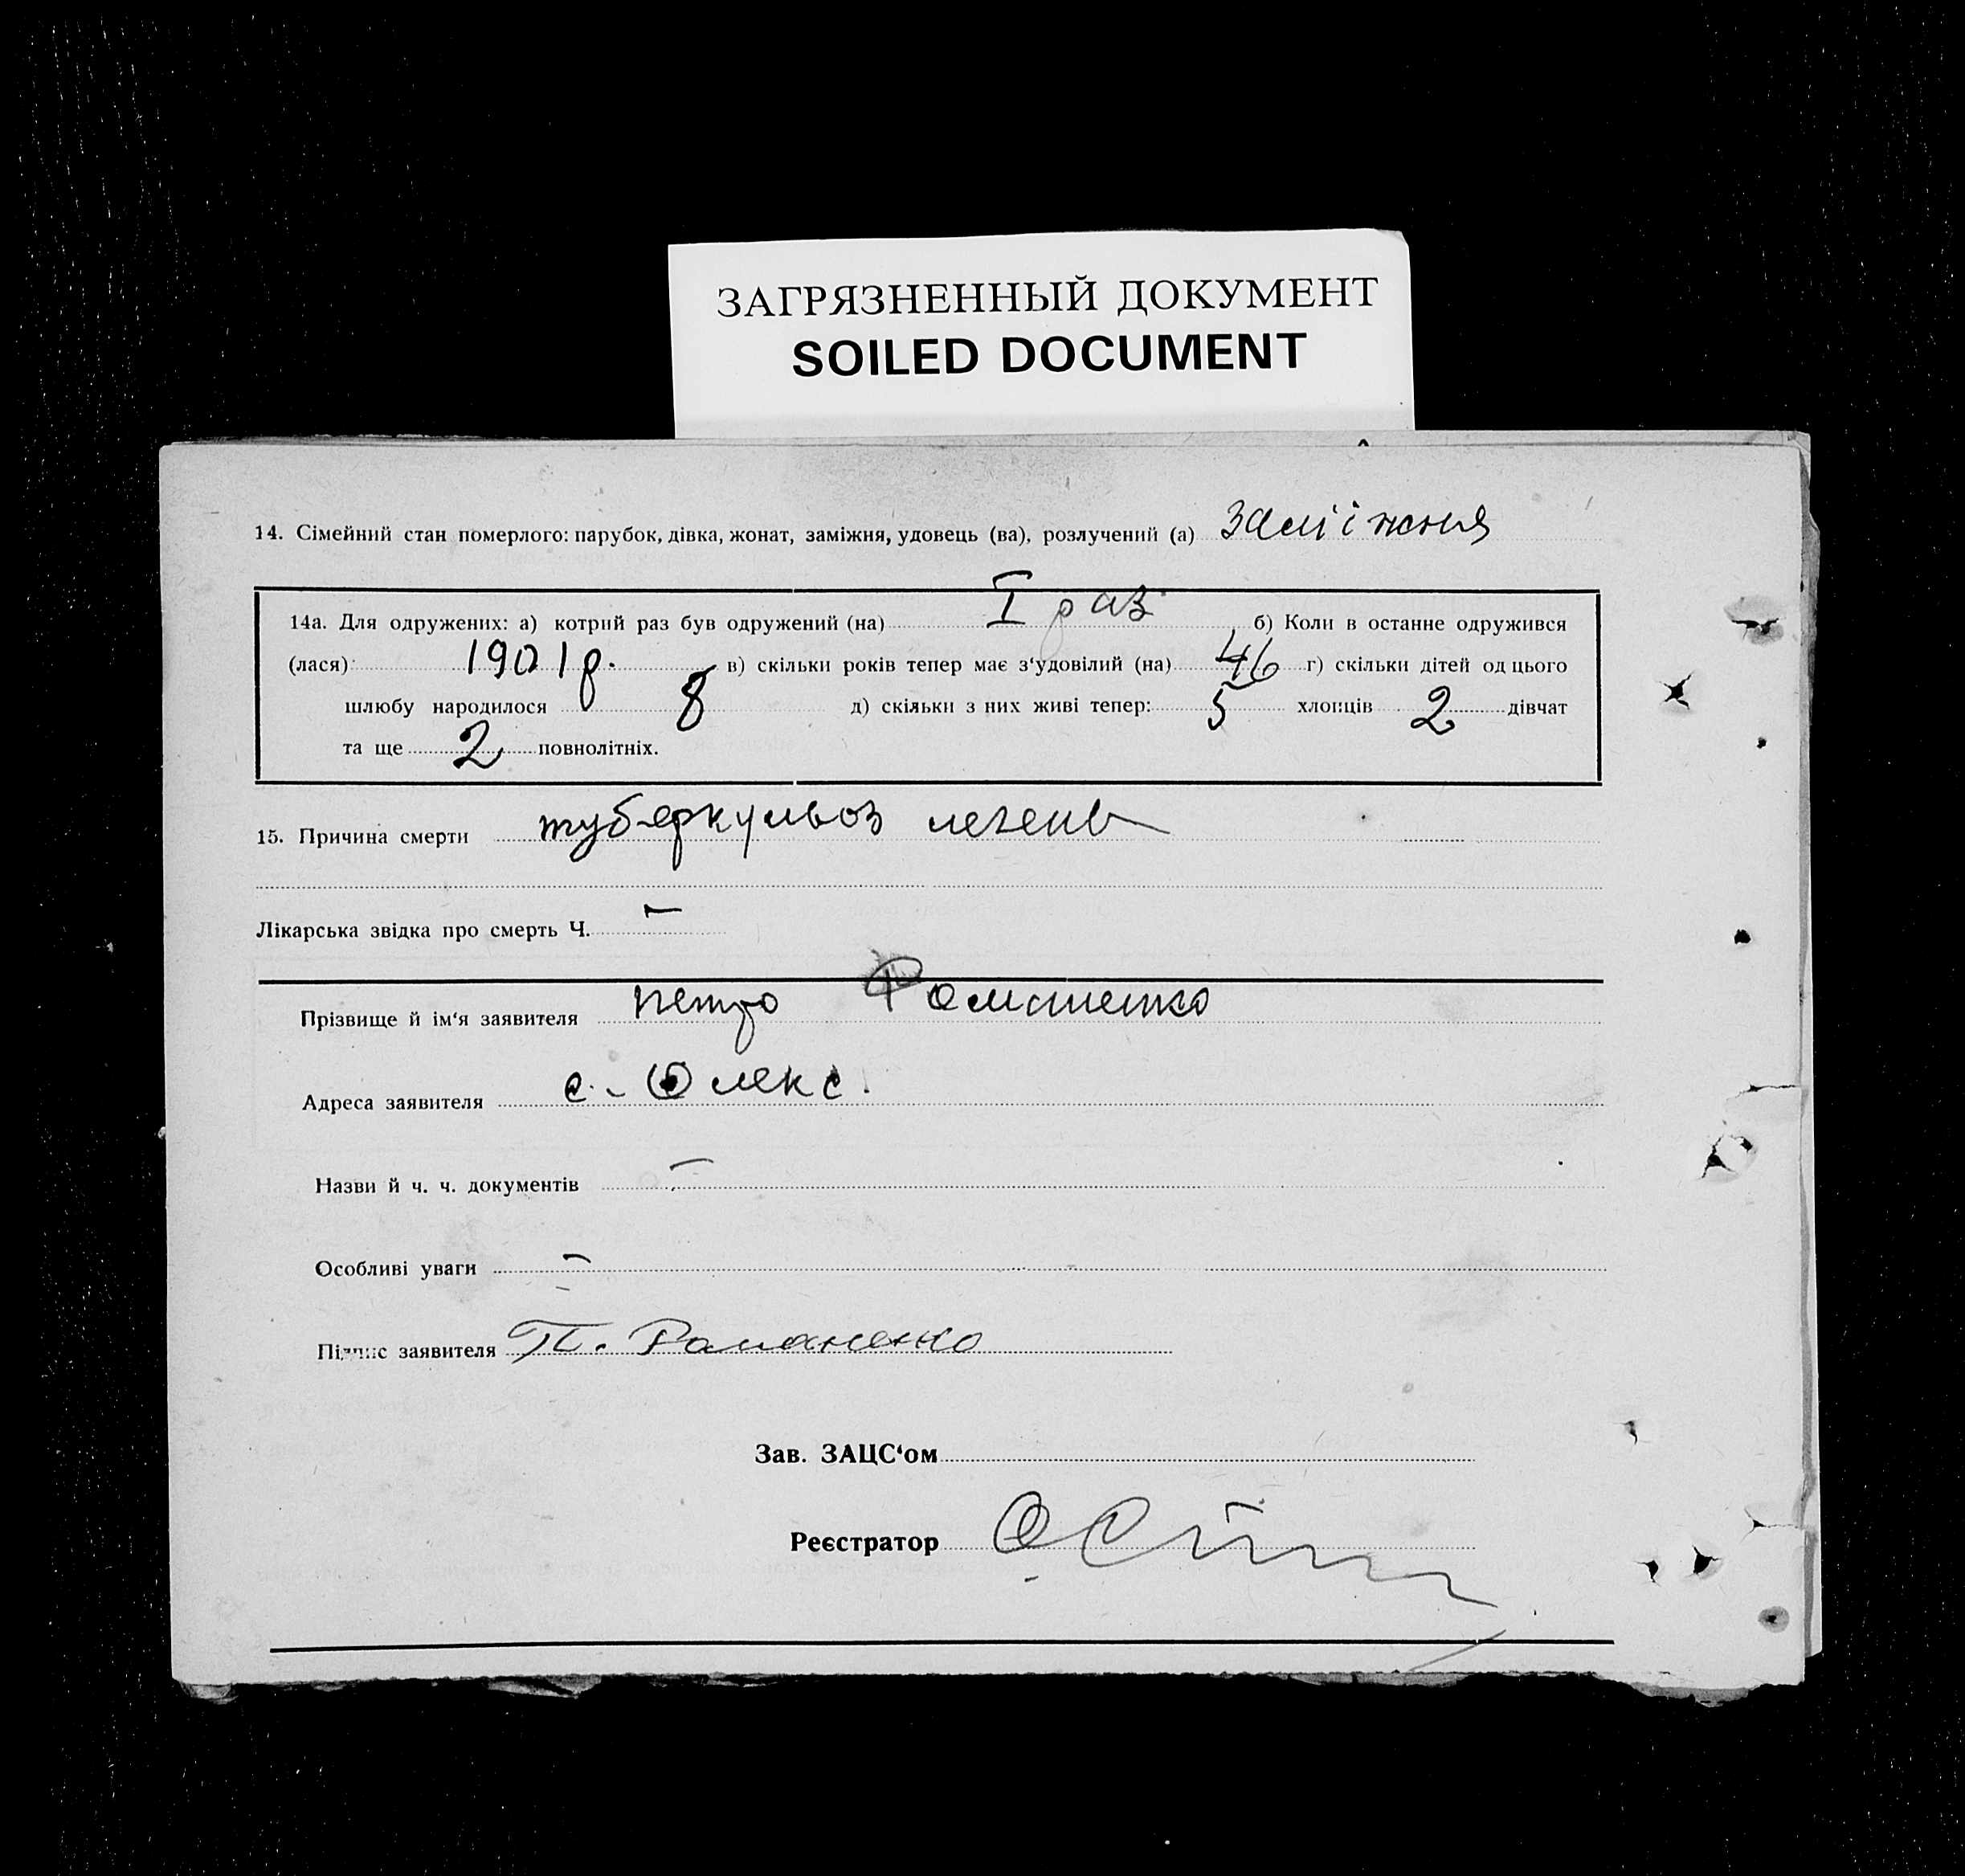 ЗАГРЯЗНЕННЫЙ ДОКУМЕНТ
SOILED DOCUMENT
14. Сімейний стан померлого: парубок, дівка, жонат, заміжня, удовець (ва), розлучений (а) заміжня
14а. Для одружених: а) котрий раз був одружений (на) I раз б) Коли в останнє одружився
(лася) 1901 р. в) скільки років тепер має з‘удовілий (на) 46 г) скільки дітей од цього
шлюбу народилося 8 д) скільки з них живі тепер: 5 хлопців 2 дівчат
та ще 2 повнолітніх.
15. Причина смерти туберкульоз легенів
Лікарська звідка про смерть Ч. —
Прізвище й ім‘я заявителя петро Романенко
Адреса заявителя с. Олекс.
Назви й ч. ч. документів —
Особливі уваги —
Підпис заявителя П. Романенко
Зав. ЗАЦС‘ом
Реєстратор